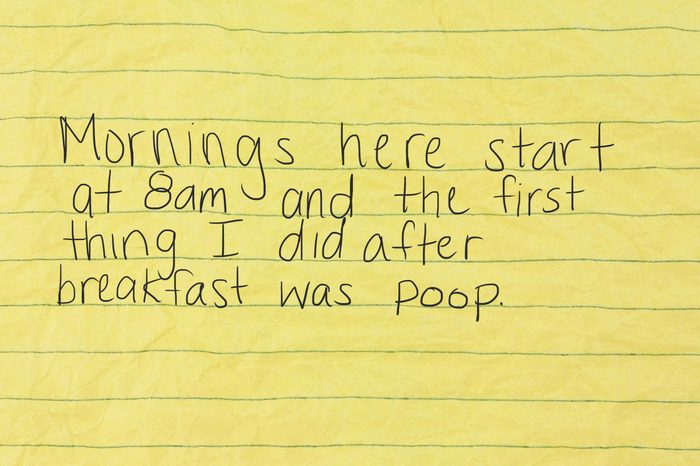 Mornings here start
at 8am and the first
thing I did after
breakfast was poop.